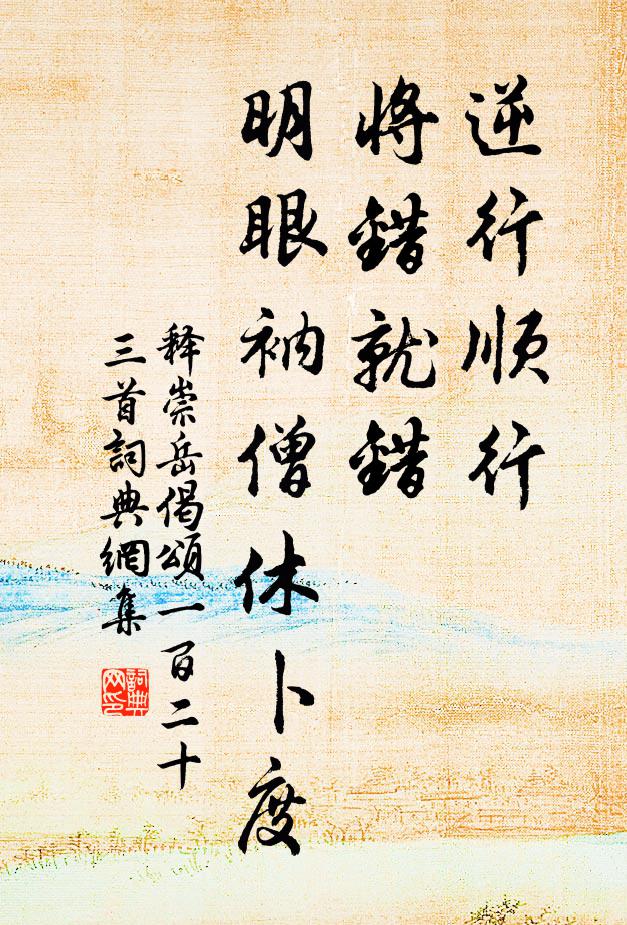 逆行顺行
将錯就錯
明眼衲僧休卜度
释崇岳偈頌一百二十
三首詞典網集
詞典
网印